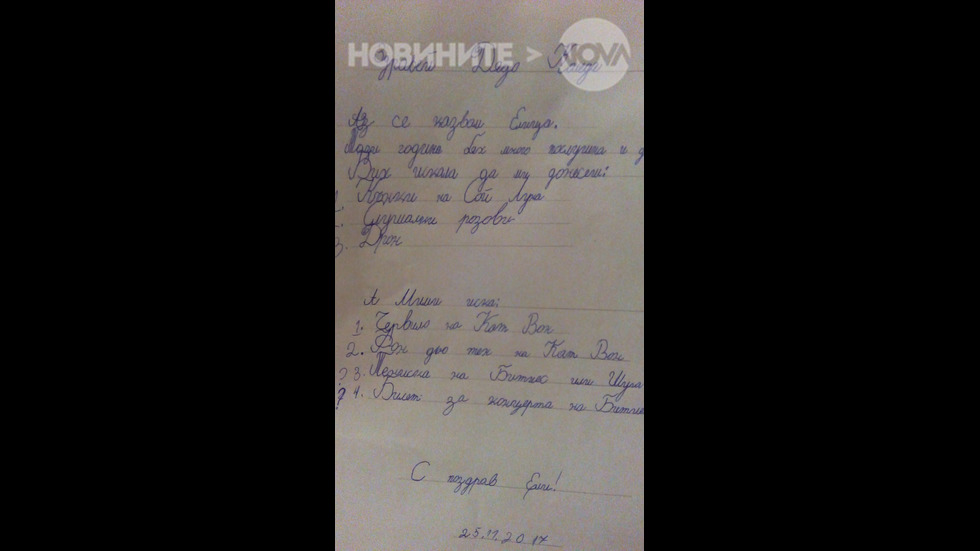 НОВИНИТЕ > NOVA
Здравей Дядо Коледа
Аз се казвам Елица.
Тази година бях много послушна и
Бих искала да ми донесеш:
1. Кънки на Сой Луна
2. Слушалки розови
3. Дрон
А Мими иска:
1. Червило на Кат Вон
2. Фон дьо тен на Кат Вон
3. Тениска на Битнес или Шуга
4. Билет за концерта на
С поздрав Ели!
25.11.2017